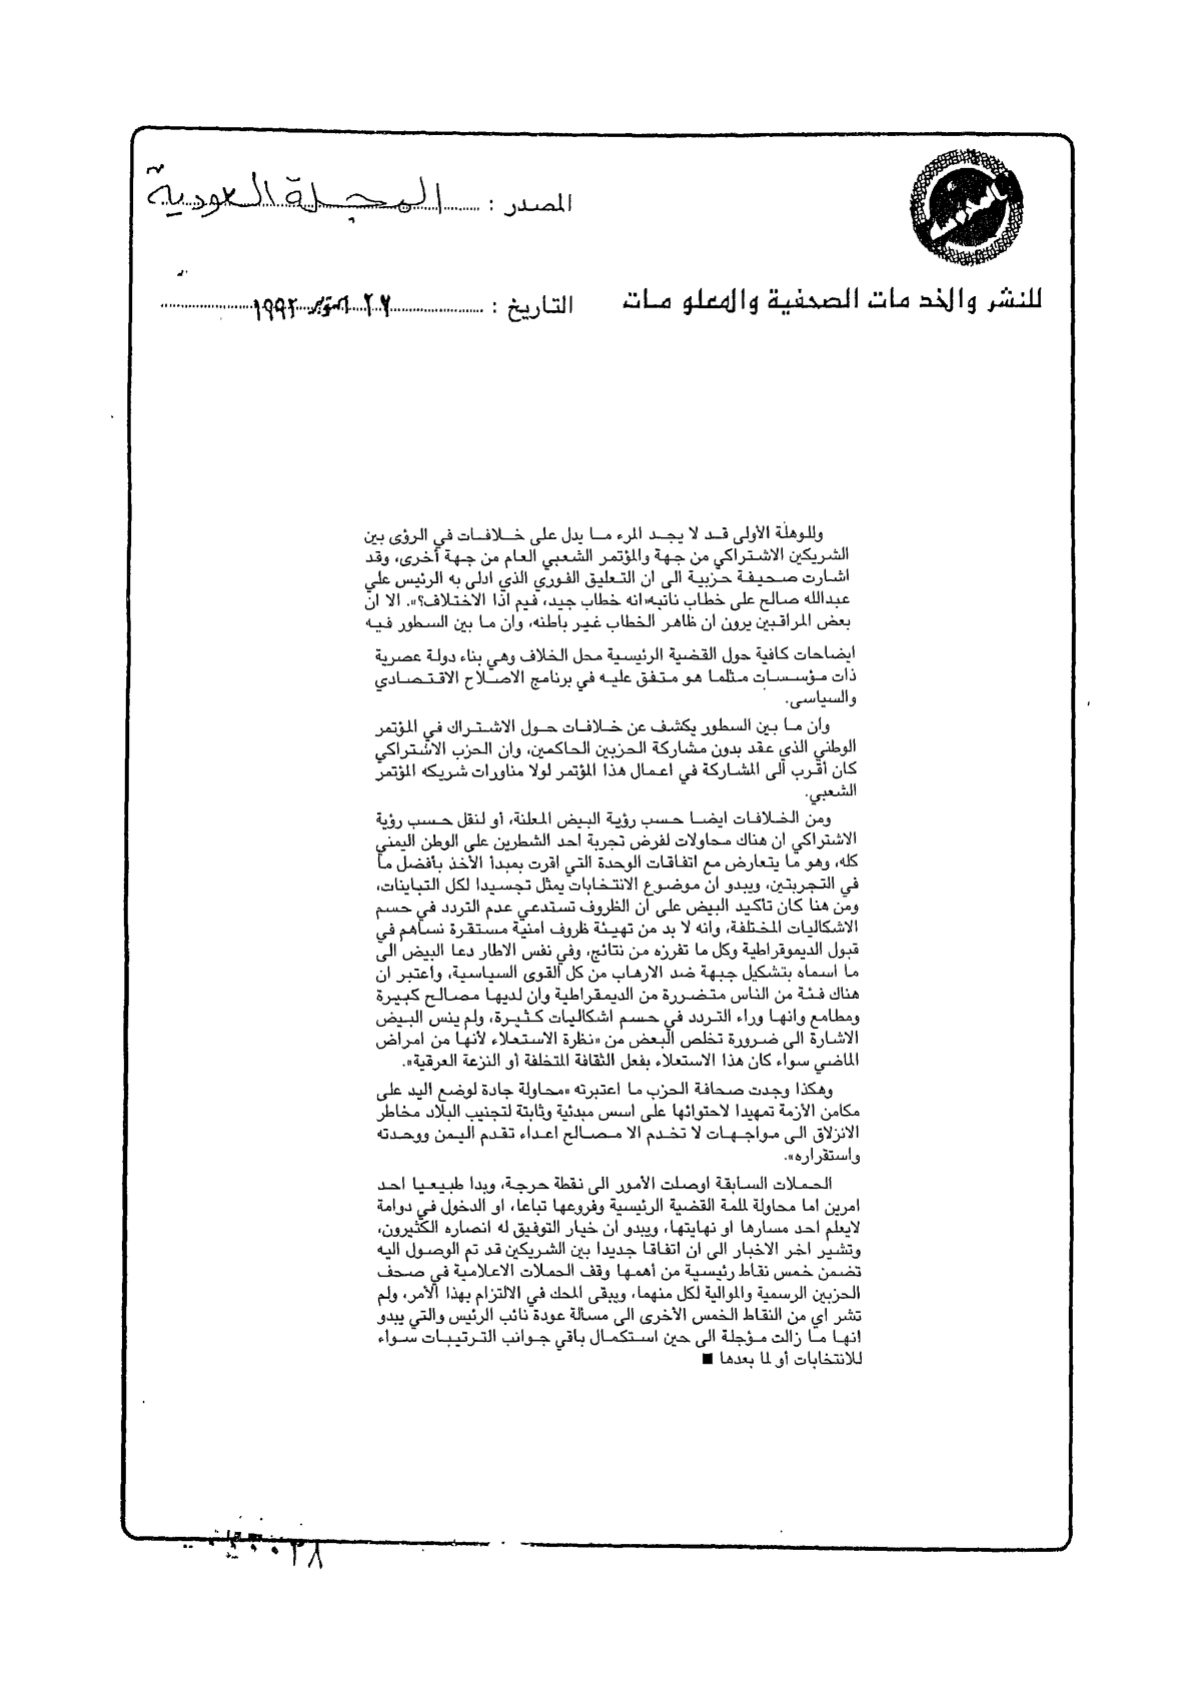 المصدر : المجلة السعودية
للنشر والخدمات الصحفية والمعلومات
التاريخ : ٢٧ اكتوبر ١٩٩٢
وللوهلة الأولى قد لا يجد المرء ما يدل على خلافات في الرؤى بين
الشريكين الاشتراكي من جهة والمؤتمر الشعبي العام من جهة أخرى، وقد
اشارت صحيفة حزبية الى ان التعليق الفوري الذي ادلى به الرئيس علي
عبدالله صالح على خطاب نائبه «انه خطاب جيد، فيم اذا الاختلاف؟». الا ان
بعض المراقبين يرون ان ظاهر الخطاب غير باطنه، وان ما بين السطور فيه
ايضاحات كافية حول القضية الرئيسية محل الخلاف وهي بناء دولة عصرية
ذات مؤسسات مثلما هو متفق عليه في برنامج الاصلاح الاقتصادي
والسياسي.
وان ما بين السطور يكشف عن خلافات حول الاشتراك في المؤتمر
الوطني الذي عقد بدون مشاركة الحزبين الحاكمين، وان الحزب الاشتراكي
كان أقرب الى المشاركة في اعمال هذا المؤتمر لولا مناورات شريكه المؤتمر
الشعبي.
ومن الخلافات ايضا حسب رؤية البيض المعلنة، أو لنقل حسب رؤية
الاشتراكي ان هناك محاولات لفرض تجربة احد الشطرين على الوطن اليمني
كله، وهو ما يتعارض مع اتفاقات الوحدة التي اقرت بمبدأ الأخذ بأفضل ما
في التجربتين، ويبدو ان موضوع الانتخابات يمثل تجسيدا لكل التباينات،
ومن هنا كان تاكيد البيض على ان الظروف تستدعي عدم التردد في حسم
الاشكاليات المختلفة، وانه لا بد من تهيئة ظروف امنية مستقرة نساهم في
قبول الديموقراطية وكل ما تفرزه من نتائج، وفي نفس الاطار دعا البيض الى
ما اسماه بتشكيل جبهة ضد الارهاب من كل القوى السياسية، واعتبر ان
هناك فئة من الناس متضررة من الديمقراطية وان لديها مصالح كبيرة
ومطامع وانها وراء التردد في حسم اشكاليات كثيرة، ولم ينس البيض
الاشارة الى ضرورة تخلص البعض من «نظرة الاستعلاء لأنها من امراض
الماضي سواء كان هذا الاستعلاء بفعل الثقافة المتخلفة أو النزعة العرقية».
وهكذا وجدت صحافة الحزب ما اعتبرته «محاولة جادة لوضع اليد على
مكامن الأزمة تمهيدا لاحتوائها على اسس مبدئية وثابتة لتجنيب البلاد مخاطر
الانزلاق الى مواجهات لا تخدم الا مصالح اعداء تقدم اليمن ووحدته
واستقراره».
الحملات السابقة اوصلت الأمور الى نقطة حرجة، وبدا طبيعيا احد
امرين اما محاولة للملمة القضية الرئيسية وفروعها تباعا، او الدخول في دوامة
لايعلم احد مسارها او نهايتها، ويبدو ان خيار التوفيق له انصاره الكثيرون،
وتشير اخر الاخبار الى ان اتفاقا جديدا بين الشريكين قد تم الوصول اليه
تضمن خمس نقاط رئيسية من أهمها وقف الحملات الاعلامية في صحف
الحزبين الرسمية والموالية لكل منهما، ويبقى المحك في الالتزام بهذا الأمر، ولم
تشر أي من النقاط الخمس الأخرى الى مسألة عودة نائب الرئيس والتي يبدو
انها ما زالت مؤجلة الى حين استكمال باقي جوانب الترتيبات سواء
للانتخابات أو لما بعدها ■